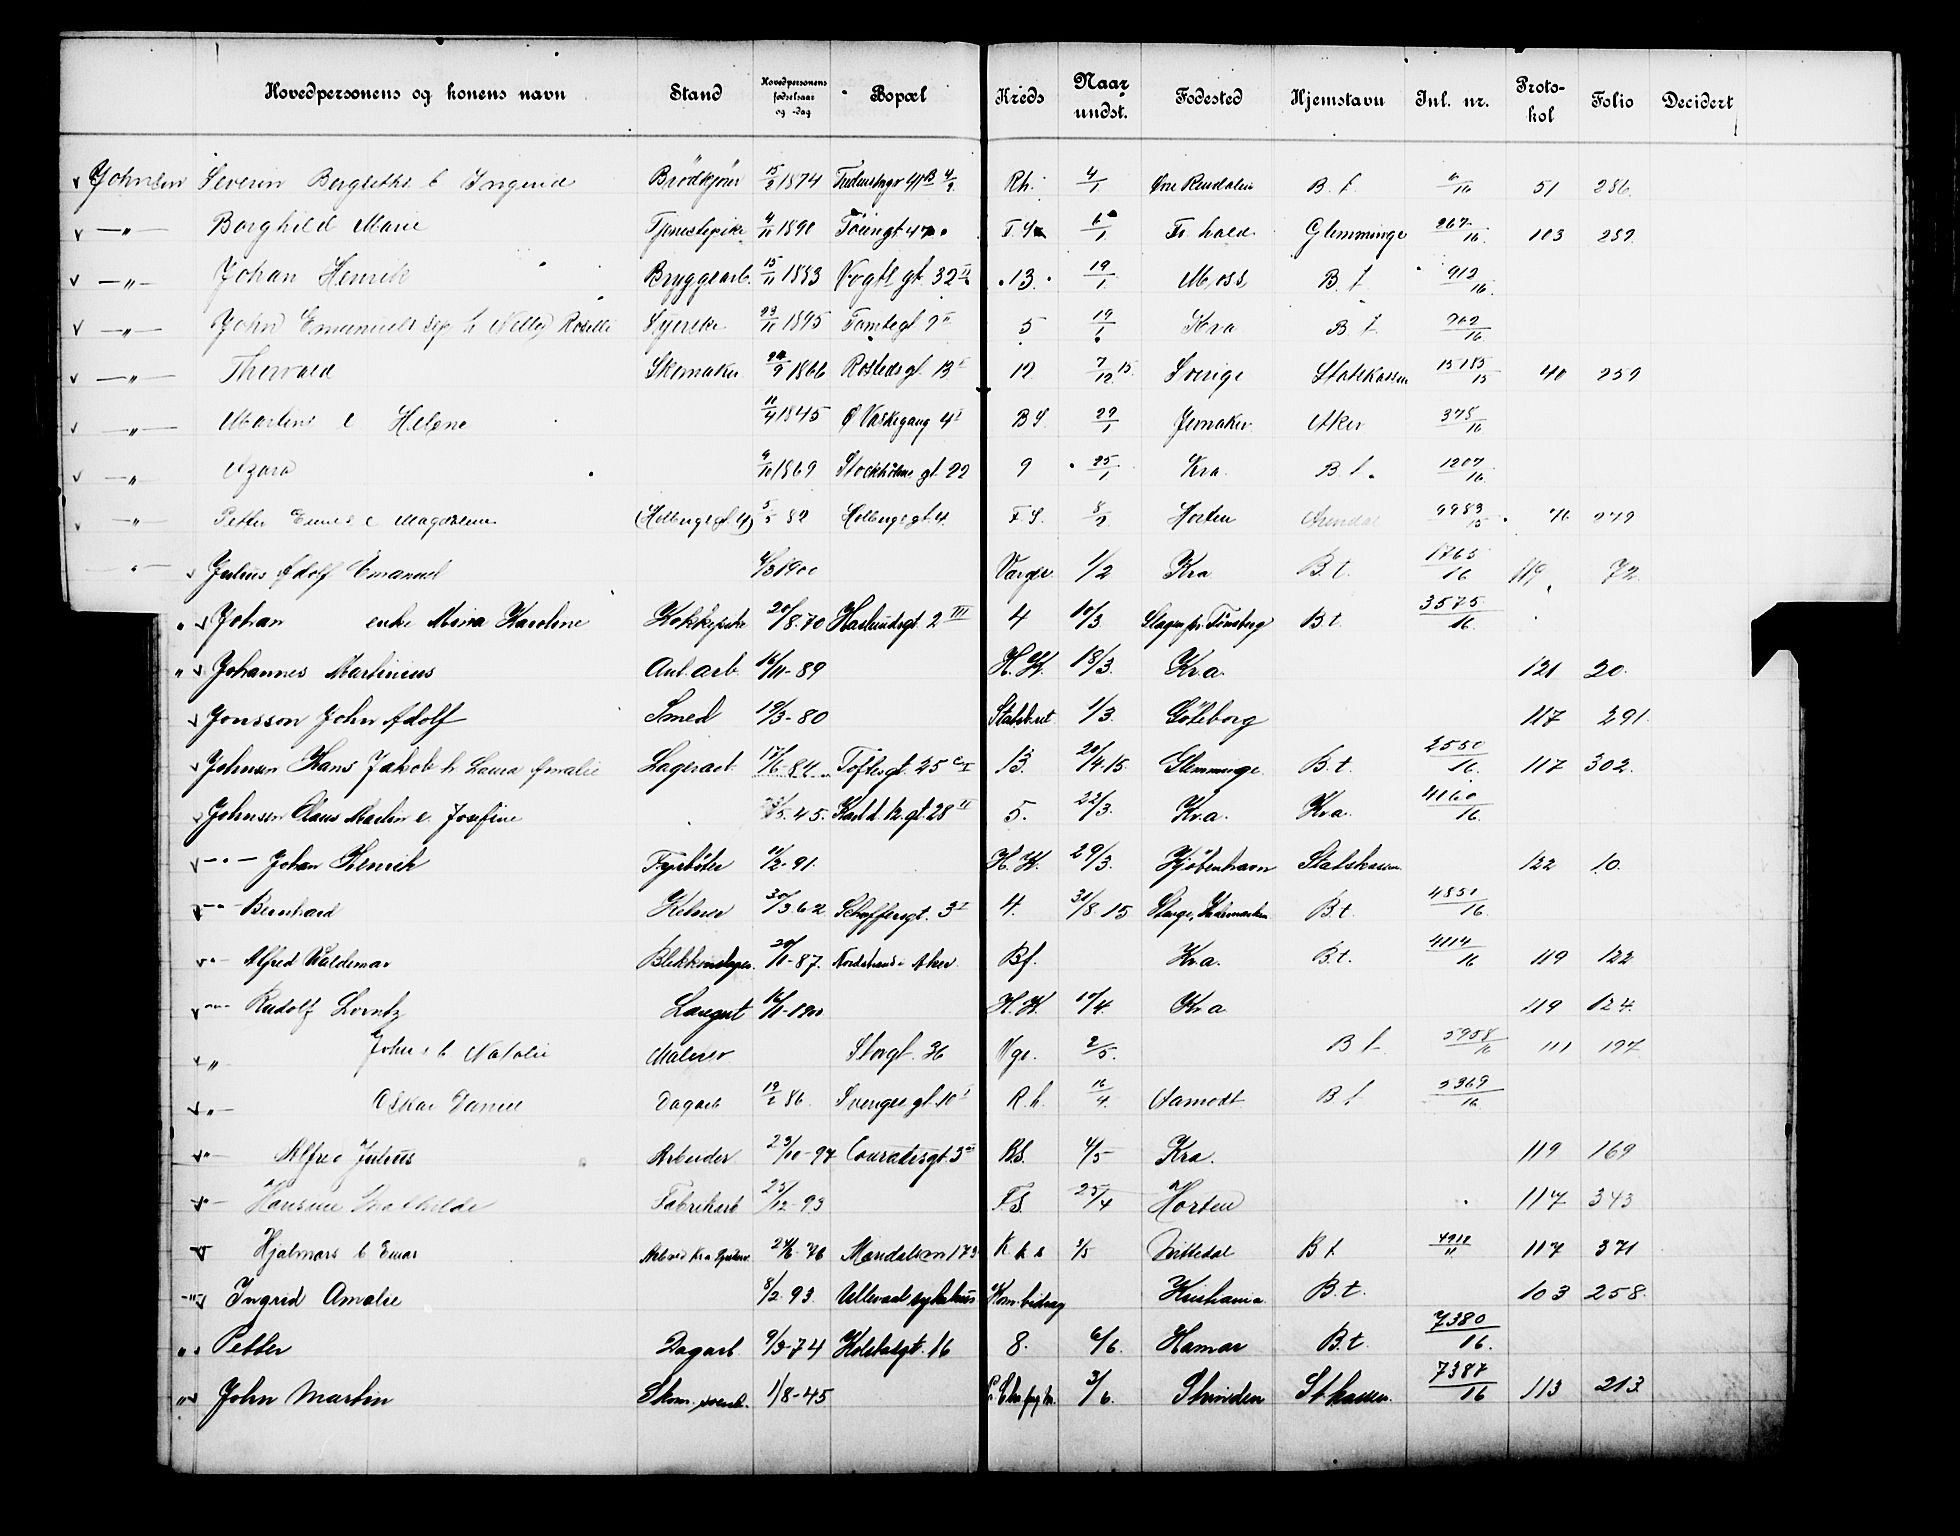 Hovedpersonens og konens navn Stand Hovedpersonens fødselsaar og -dag Bopæl Kreds Naar undst. Fødested Hjemstavn Jnl. nr. Protokol Folio Decidert
Johnsen Severin Bergsethr b Ingerid Brödkjörer 15/2 1874 Rh. 4/1 Øvre Rendalen B. t. 6/16 51 286
—„— Borghild Marie Tjenestepike 4/11 1890 Töiengt 47 6/1 Fr hald Glemminge 267/16 103 289
—„— Johan Henrik Bryggearb. 15/11 1883 Vogts gt. 32 II 13. 19/1 Moss B. t 912/16
—„— John Emanuels Sep. h Nelly Roselle Syerske 23/11 1895 Tomtegt 9 II 5 19/1 Kra B t 969/16
—„— Thorvald Skomaker 24/9 1866 Rostedsgt. 13 I 12 7/12 15 Sverige Statskassen 15185/15 40 259
—„— Martins e Helene 11/4 1845 Ø Vaskegang 4 I B S 29/1 Jevnaker Aker 375/16
—„— Azora 4/10 1869 Stockholms gt. 22 9 25/1 Kra B t. 1207/16
—„— Petter Emils e Magdalena (Holbergsgt. 4) 5/5 82 Holbergsgt. 4. F. S. 8/2 Horten Arendal 9983/15 76 279
—„— Julius Adolf Emanuel 4/3 1900 Varger 1/2 Kra B. t. 1765/16 119 72
„ Johan enke Mina Karoline Kokkepike 20/8. 70 Haslundsgt. 2 III 4 10/3 Slagen pr. Tönsberg B. t 3575/16.
„ Johannes Martinius Anl. arb. 16/11-89 H. K. 18/3. Kr.a. 121 20.
Jonsson John Adolf Smed 19/3-80 1/3. Göteborg 117 291.
Johnsen Hans Jakob h Laura Amalie Lagerarb. 17/6-84 Toftesgt. 25 c I 13. 20/4-15. Glemminge B. t. 2550/16. 117 302.
Johnsen Claus Martin e. Josefine 5. 45. Karl d. 12. gt. 28 II 5. 22/3. Kr.a. Kr.a. 4160/16.
—„— Johan Henrik Fyrböter 11/2-91. H. K. 29/3. Kjöbenhavn Statskassen 122 10.
„ Bernhard Kelner 30/3 62 Schäffersgt. 3 I 4. 31/8. 15 Stange, Hedemarken B. t. 4851/16.
—„— Alfred Waldemar Blikkenslager. 20/11-87. Nordstrand i Aker. Bf. Kr.a. B. t. 4114/16 119 122
—„— Rudolf Lorntz Laugut 16/11-1900 H. K. 10/4. Kr.a 119 124.
„ Johns b Natalie Maler Storgt. 36 Vge. 2/5. B t 5958/16 111 197
„— Oskar Daniel Dagarb 19/6 86. Sverigesgt. 10 I R. h. 16/4. Aamodt B t 5369/16
„— Alfred Julius Arbeider 23/10-97 Conradisgt. 3 III B.S. 4/5 Kra. 119 169
„— Hansine Mathilde Fabrikarb 23/12-93 F.S 25/4 Horten 117 343
Hjalmars b Einar 24/6-76 Maridalsvn 173 K. h. s 3/5 Nittedal B t. 4918/11 117 371
—„— Ingrid Amalie 8/2. 93. Ullevaal sykehus Kom. bidrag Kristiania B. t. 103 258.
„ Petter Dagarb 9/3-74 Holstsgt. 16 8. 6/6. Hamar B. t. 7380/16.
„ John Martin Skom. svend. 1/8-45 3/6. Strinden St. kassen. 7387/16 113 213